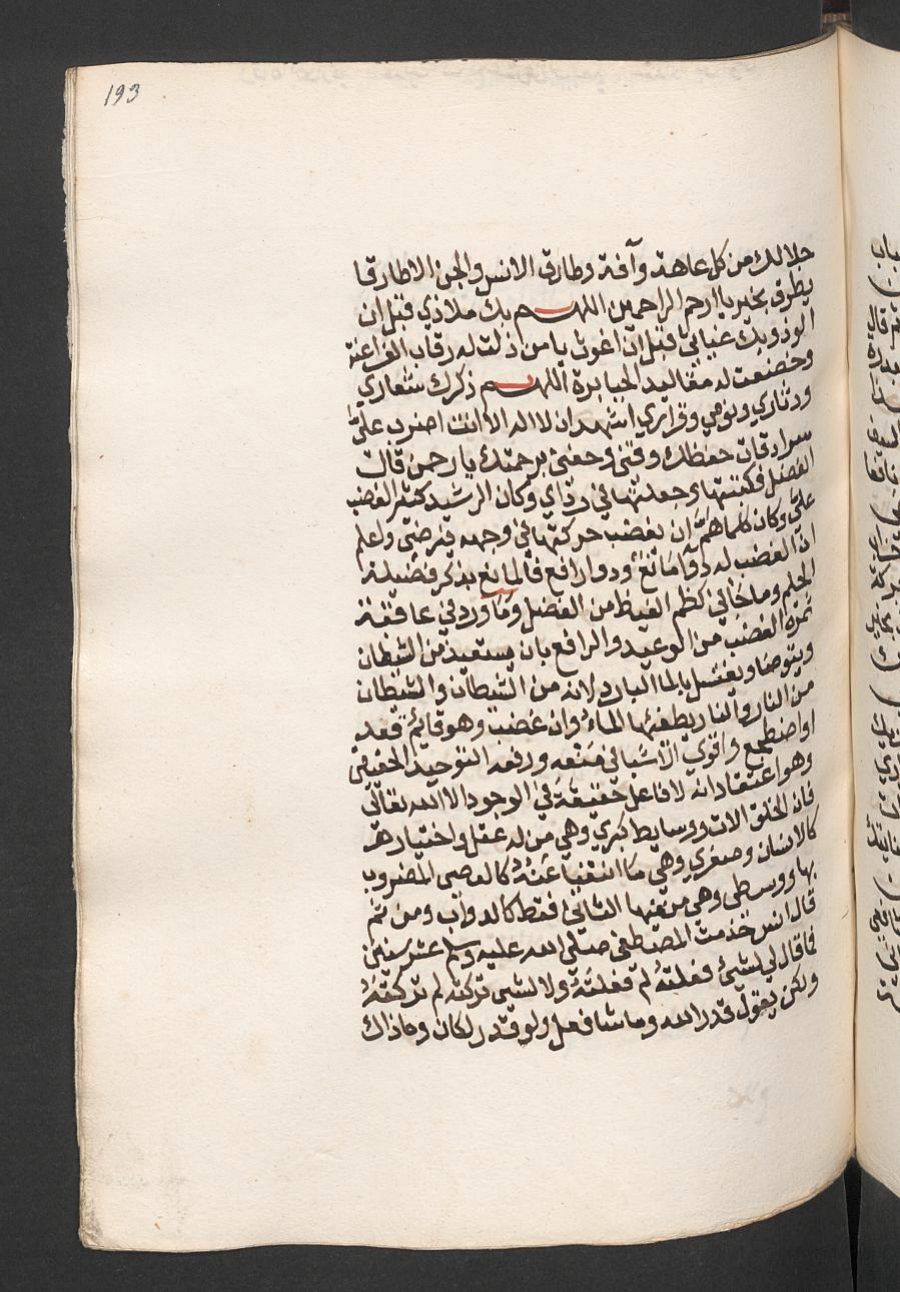 193
جلالك من كل عاهة وآفة وطارق الانس والجن الاطارقا
يطرق بخير يا ارحم الراحمين اللهم بك ملاذي قبل ان
الوذ وبك غياثي قبل ان اغوث يا من ذلت له رقاب الفراعنة
وخضعت له مقاليد الجبابرة اللهم ذكرك شعاري
ودثاري ونومي وقراري اشهد ان لا اله الا انت اضرب عليّ
سرادقات حفظك وقني وحفني برحمتك يا رحمن قالت
الفضل فكتبتها وجعلتها في رداي وكان الرشيد كثير الغضب
عليّ وكان كلما همّ ان يغضب حركتها في وجهه فيرضى واعلم
ان الغضب له دوآ مانع ودوا رافع فالمانع بذكر فضيلة
الحلم وما جا في كظم الغيظ من الفضل وما ورد في عاقبة
ثمرة الغضب من الوعيد والرافع بان يستعيذ من الشيطان
ويتوضا ويغتسل بالما البارد لانه من الشيطان والشيطان
من النار والنار يطفئها الماء وان غضب وهو قائم قعد
او اضطجع واقوي الاشيا في منعه ورفعه التوحيد الحقيقي
وهو اعتقاد انه لا فاعل حقيقة في الوجود الا الله تعالى
فان الخلق الات ووسايط كبري وهي من له عقل واختيار
كالانسان وصغري وهي ما انتفيا عنه كالعصى المضروب
بها ووسطى وهي من فيها الثاني فقط كالدواب ومن ثم
قال انس خدمت المصطفى صلى الله عليه وسلم عشر سنين
فما قال لي لشئ فعلته لم فعلته ولا لشى تركته لم تركته
ولكن يقول قدر الله وما شا فعل ولو قدر لكان وماذاك